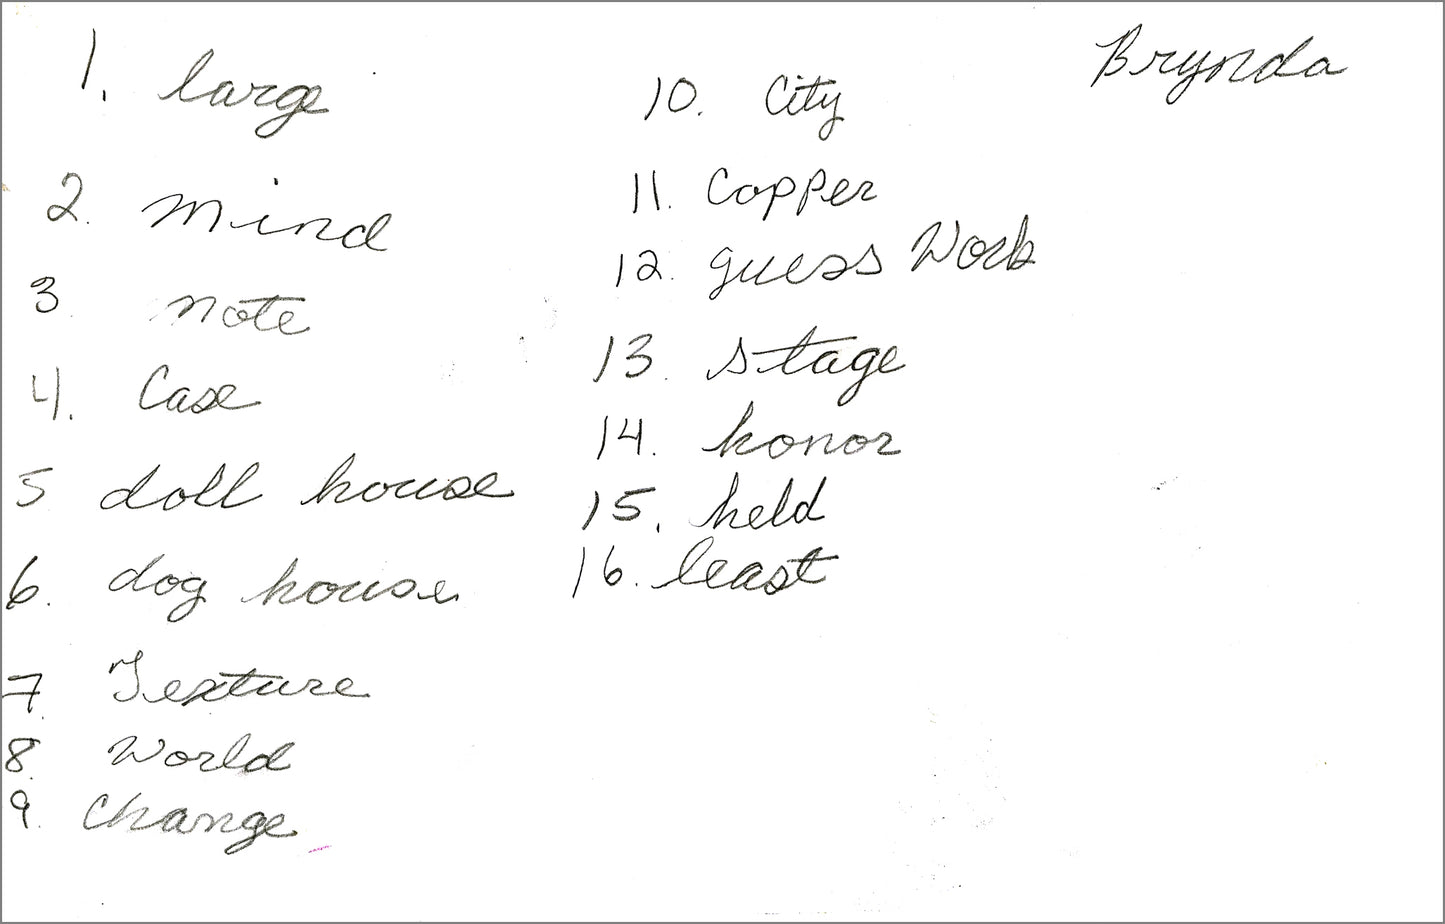 Brynda
1. large
2. mind
3 note
4. Case
5 doll house
6. dog house
7. Texture
8. World
9. Change
10. City
11. Copper
12. guess Work
13. stage
14. honor
15. held
16. least